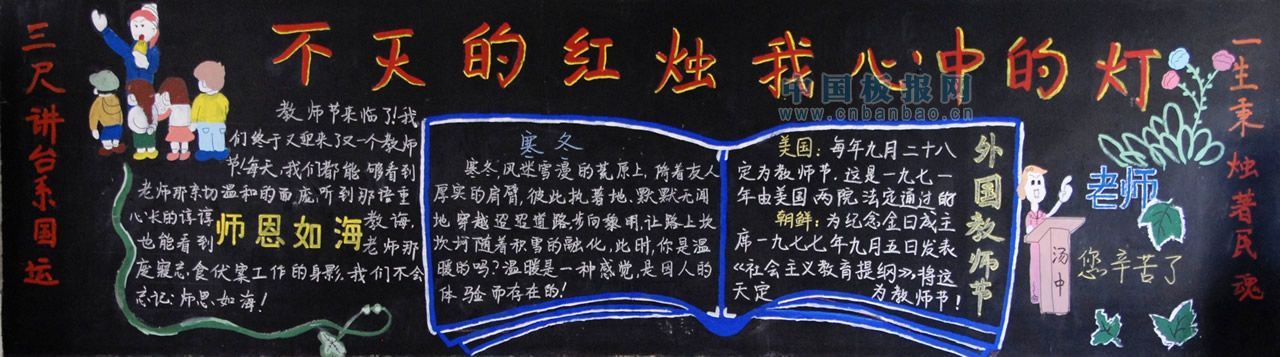 三尺讲台系国运
不灭的红烛我心中的灯
中国板报网
www.cnbanbao.cn
教师节来临了!我
们终于又迎来了又一个教师
节!每天,我们都能够看到
老师那亲切温和的面庞,听到那语重
心长的谆谆
教诲,
师恩如海
也能看到
老师那
废寝忘食伏案工作的身影.我们不会
忘记:师恩如海!
寒冬
寒冬,风迷雪漫的荒原上,随着友人
厚实的肩臂,彼此执著地、默默无闻
地穿越迢迢道路,步向黎明,让路上坎
坎坷随着积雪的融化,此时,你是温
暖的吗?温暖是一种感觉,是因人的
体验而存在的!
外国教师节
美国:每年九月二十八
定为教师节,这是一九七一
年由美国两院法定通过的
朝鲜:为纪念金日成主
席一九七七年九月五日发表
《社会主义教育提纲》,将这
天定为教师节!
老师
您辛苦了
汤中
一生秉烛著民魂